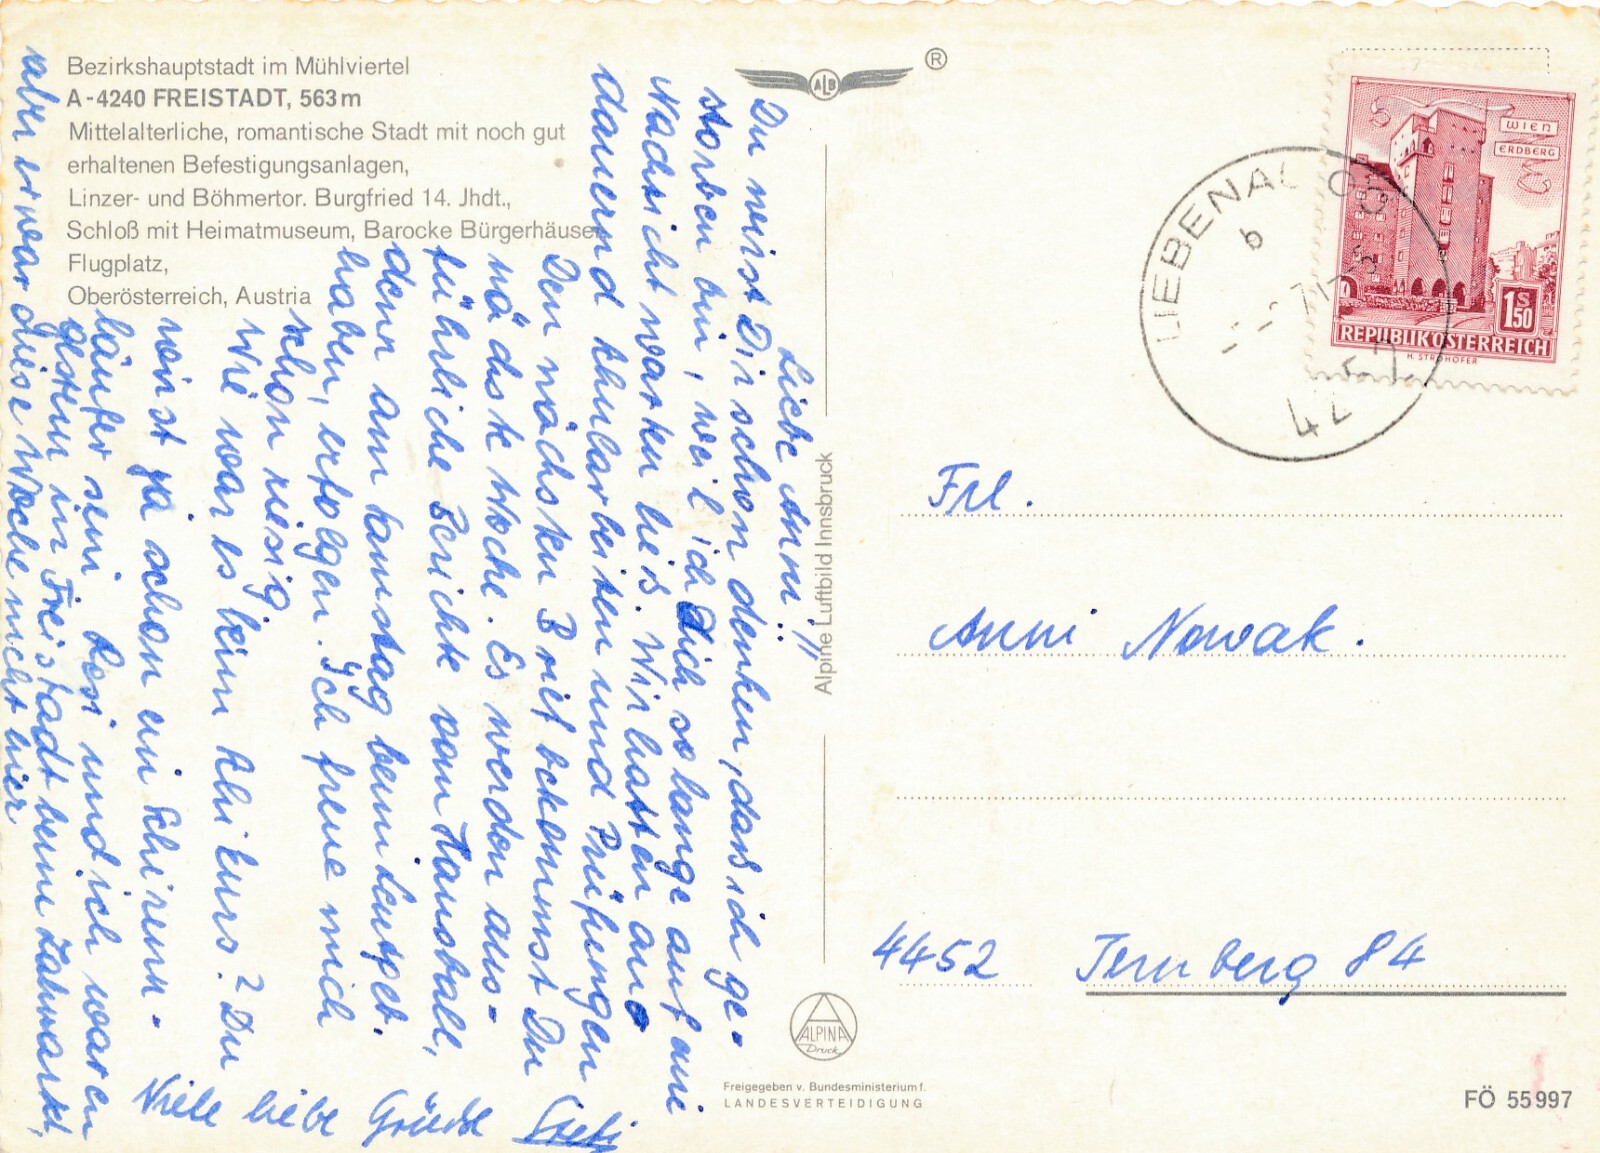 Bezirkshauptstadt im Mühlviertel
A-4240 FREISTADT, 563 m
Mittelalterliche, romantische Stadt mit noch gut
erhaltenen Befestigungsanlagen,
Linzer- und Böhmertor. Burgfried 14. Jhdt.,
Schloß mit Heimatmuseum, Barocke Bürgerhäuser
Flugplatz,
Oberösterreich, Austria
ALB
®
Liebe Anni!
Du meinst Dir schon denken, daß ich ge-
storben bin, weil ich Dich so lange auf eine
Nachricht warten ließ. Wir hatten an
dauernd Schularbeiten und Prüfungen
Den nächsten Brief bekommst Du
nächste Woche. Es werden aus-
führliche Berichte vom Hausball,
denn am Samstag beim
haben, erfolgen. Ich freue mich
schon riesig.
Wie war es beim Schikurs? Du
wirst ja schon ein Schirenn-
läufer sein. Resi und ich waren
gestern in Freistadt beim Zahnarzt,
aber er war diese Woche nicht hier
Viele liebe Grüße
Alpine Luftbild Innsbruck
ALPINA
Druck
Freigegeben v. Bundesministerium f.
LANDESVERTEIDIGUNG
WIEN
ERDBERG
1 S 50
REPUBLIK ÖSTERREICH
H. STROHOFER
LIEBENAU
b
42
Frl.
Anni Nowak.
4452 Ternberg 84
FÖ 55 997